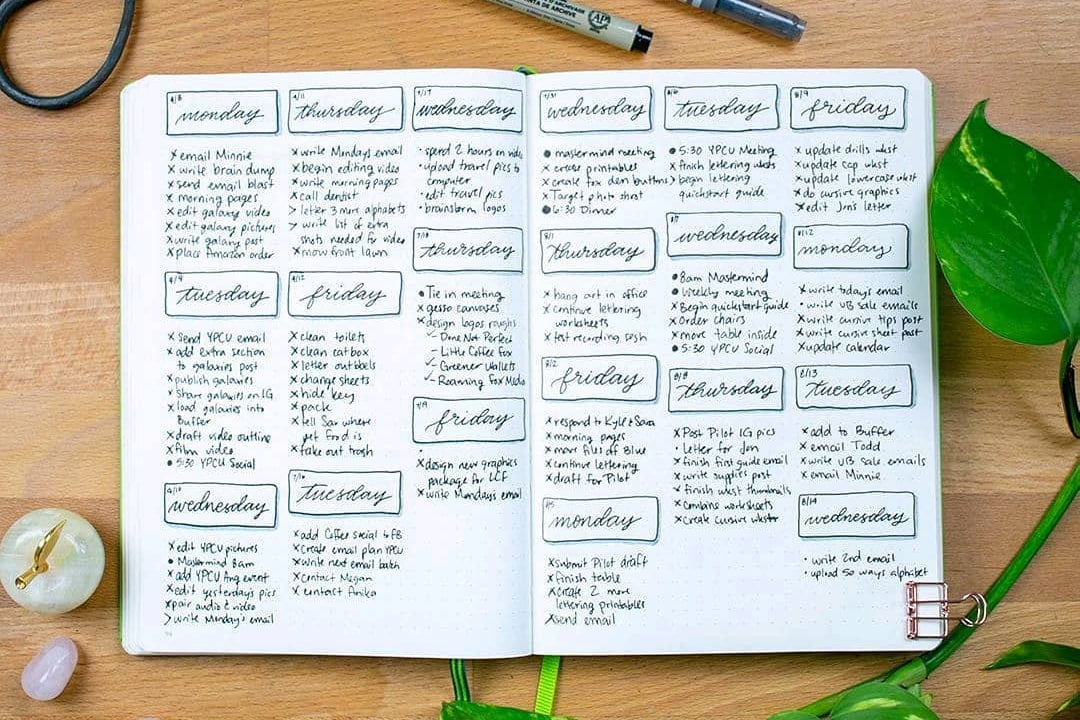 DE ARCHIVO
AP
4/8
monday
x email Minnie
x write brain dump
x send email blast
x morning pages
x edit galaxy video
x edit galaxy pictures
x write galaxy post
x place Amazon order
4/9
tuesday
x send YPCU email
x add extra section
to galaxies post
x publish galaxies
x share galaxies on IG
x load galaxies into
Buffer
x draft video outline
x film video
• 5:30 YPCU Social
wednesday
x edit YPCU pictures
• Mastermind 8am
x add YPCU Aug event
x edit yesterday's pics
x pair audio & video
> write Monday's email
4/11
thursday
x write Monday's email
x begin editing video
x write morning pages
x call dentist
> letter 3 more alphabets
> write list of extra
shots needed for video
x mow front lawn
4/12
friday
x clean toilets
x clean catbox
x letter outbbels
x change sheets
x hide key
x pack
x tell Sar where
pet food is
x take out trash
7/16
tuesday
x add Coffee Social to FB
x create email plan YPCU
x write next email batch
x contact Megan
x contact Anika
7/17
wednesday
• spend 2 hours on video
• upload travel pics to
computer
• edit travel pics
• brainstorm logos
7/18
thursday
• Tie in meeting
x gesso canvases
x design logos roughs
✓- Done Not Perfect
- Little Coffee Fox
✓- Greener Wallets
✓- Roaming Fox Media
friday
x design new graphics
package for LCF
x write Monday's email
7/31
wednesday
• mastermind meeting
x create printables
x create fox den buttons
x Target photo shoot
• 6:30 Dinner
8/1
thursday
x hang art in office
x continue lettering
worksheets
x test recording sesh
8/2
friday
x respond to Kyle & Sara
x morning pages
x move files off Blue
x continue lettering
x draft for Pilot
monday
x submit Pilot draft
x finish table
x create 2 more
lettering printables
x send email
8/6
tuesday
• 5:30 YPCU Meeting
x finish lettering wksts
> begin lettering
quickstart guide
8/7
wednesday
• 8am Mastermind
• weekly meeting
x Begin quickstart guide
x Order chairs
x move table inside
• 5:30 YPCU Social
8/8
thursday
x Post Pilot IG pics
• Letter for Jen
x finish first guide email
x write supplies post
x finish wkst thumbnails
x combine worksheets
x create cursive wkst
8/9
friday
x update drills wkst
x update cap wkst
x update lowercase wkst
x do cursive graphics
x edit Jen's letter
8/12
monday
x write todays email
• write VB sale emails
x write cursive tips post
x write cursive sheet post
x update calendar
8/13
tuesday
x add to Buffer
x email Todd
x write VB sale emails
x email Minnie
8/14
wednesday
• write 2nd email
• upload 50 ways alphabet